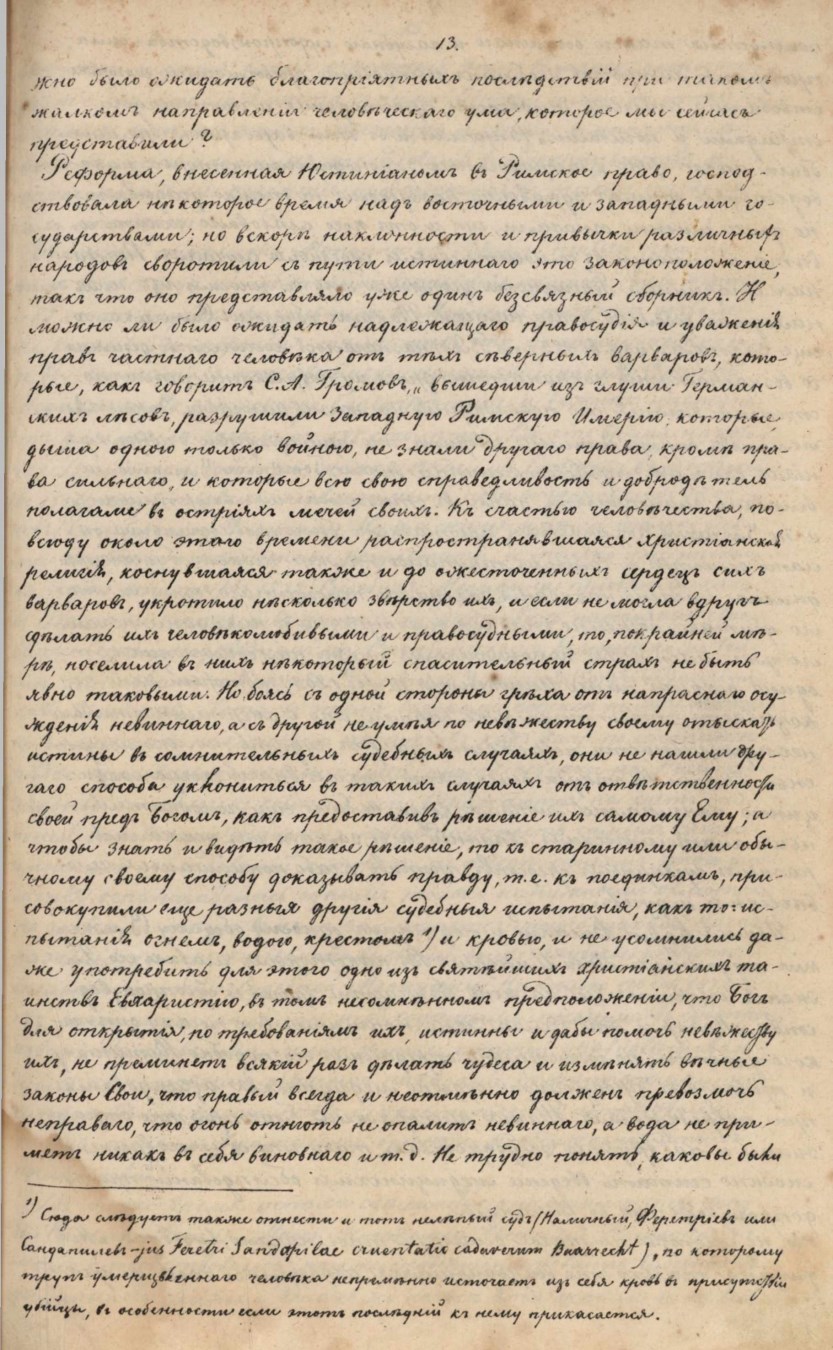 13.
жно было ожидать благопріятныхъ послѣдствій при такомъ
жалкомъ направленіи человѣческаго ума, которое мы сейчасъ
представили?
Реформа, внесенная Юстиніаномъ въ Римское право, господ-
ствовала нѣкоторое время надъ восточными и западными го-
сударствами; но вскорѣ наклонности и привычки различныхъ
народовъ своротили съ пути истиннаго это законоположеніе,
такъ что оно представляло уже одинъ безсвязный сборникъ. И
можно ли было ожидать надлежащаго правосудія и уваженія
правъ частнаго человѣка отъ тѣхъ сѣверныхъ варваровъ, кото-
рые, какъ говоритъ С. А. Громовъ, „ вышедши изъ глуши Герман-
скихъ лѣсовъ, разрушили Западную Римскую Имерію, которые,
дыша одною только войною, не знали другаго права, кромѣ пра-
ва сильнаго, и которые всю свою справедливость и добродѣтель
полагали въ остріяхъ мечей своихъ. Къ счастью человѣчества, по-
всюду около этаго времени распространявшаяся христіанская
религія, коснувшаяся также и до ожесточенныхъ сердецъ сихъ
варваровъ, укротило нѣсколько звѣрство ихъ, и если не могла вдругъ
сдѣлать ихъ человѣколюбивыми и правосудными, то, покрайней мѣ-
рѣ, поселила въ нихъ нѣкоторый спасительный страхъ не быть
явно таковыми. Но боясь съ одной стороны грѣха отъ напраснаго осу-
жденія невиннаго, а съ другой не умѣя по невѣжеству своему отыскать
истины въ сомнительныхъ судебныхъ случаяхъ, они не нашли дру-
гаго способа уклониться въ такихъ случаяхъ отъ отвѣтственности
своей предъ Богомъ, какъ предоставивъ рѣшеніе ихъ самому Ему; а
чтобы знать и видѣть такое рѣшеніе, то къ старинному или обы-
чному своему способу доказывать правду, т. е. къ поединкамъ, при-
совокупили еще разныя другія судебныя испытанія, какъ то: ис-
пытанія огнемъ, водою, крестомъ ¹) и кровью, и не усомнились да-
же употребить для этого одно изъ святѣйшихъ христіанскихъ та-
инствъ Евхаристію, въ томъ несомнѣнномъ предположеніи, что Богъ
для открытія, по требованіямъ ихъ, истинны и дабы помочь невѣжеству
ихъ, не преминетъ всякій разъ дѣлать чудеса и измѣнять вѣчные
законы Свои, что правый всегда и неотмѣнно долженъ превозмочь
неправаго, что огонь отнюдь не опалитъ невиннаго, а вода не при-
метъ никакъ въ себя виновнаго и т. д. Не трудно понять, каковы были
¹) Сюда слѣдуетъ также отнести и тотъ нелѣпый судъ (Наличный, Феретріевъ или
Сандапилевъ - jus Feretri Sandapilae cruentatis cadaverum Baarrecht), по которому
трупъ умерщвленнаго человѣка непремѣнно источаетъ изъ себя кровь въ присутствіи
убійцы, въ особенности если этотъ послѣдній къ нему прикасается.